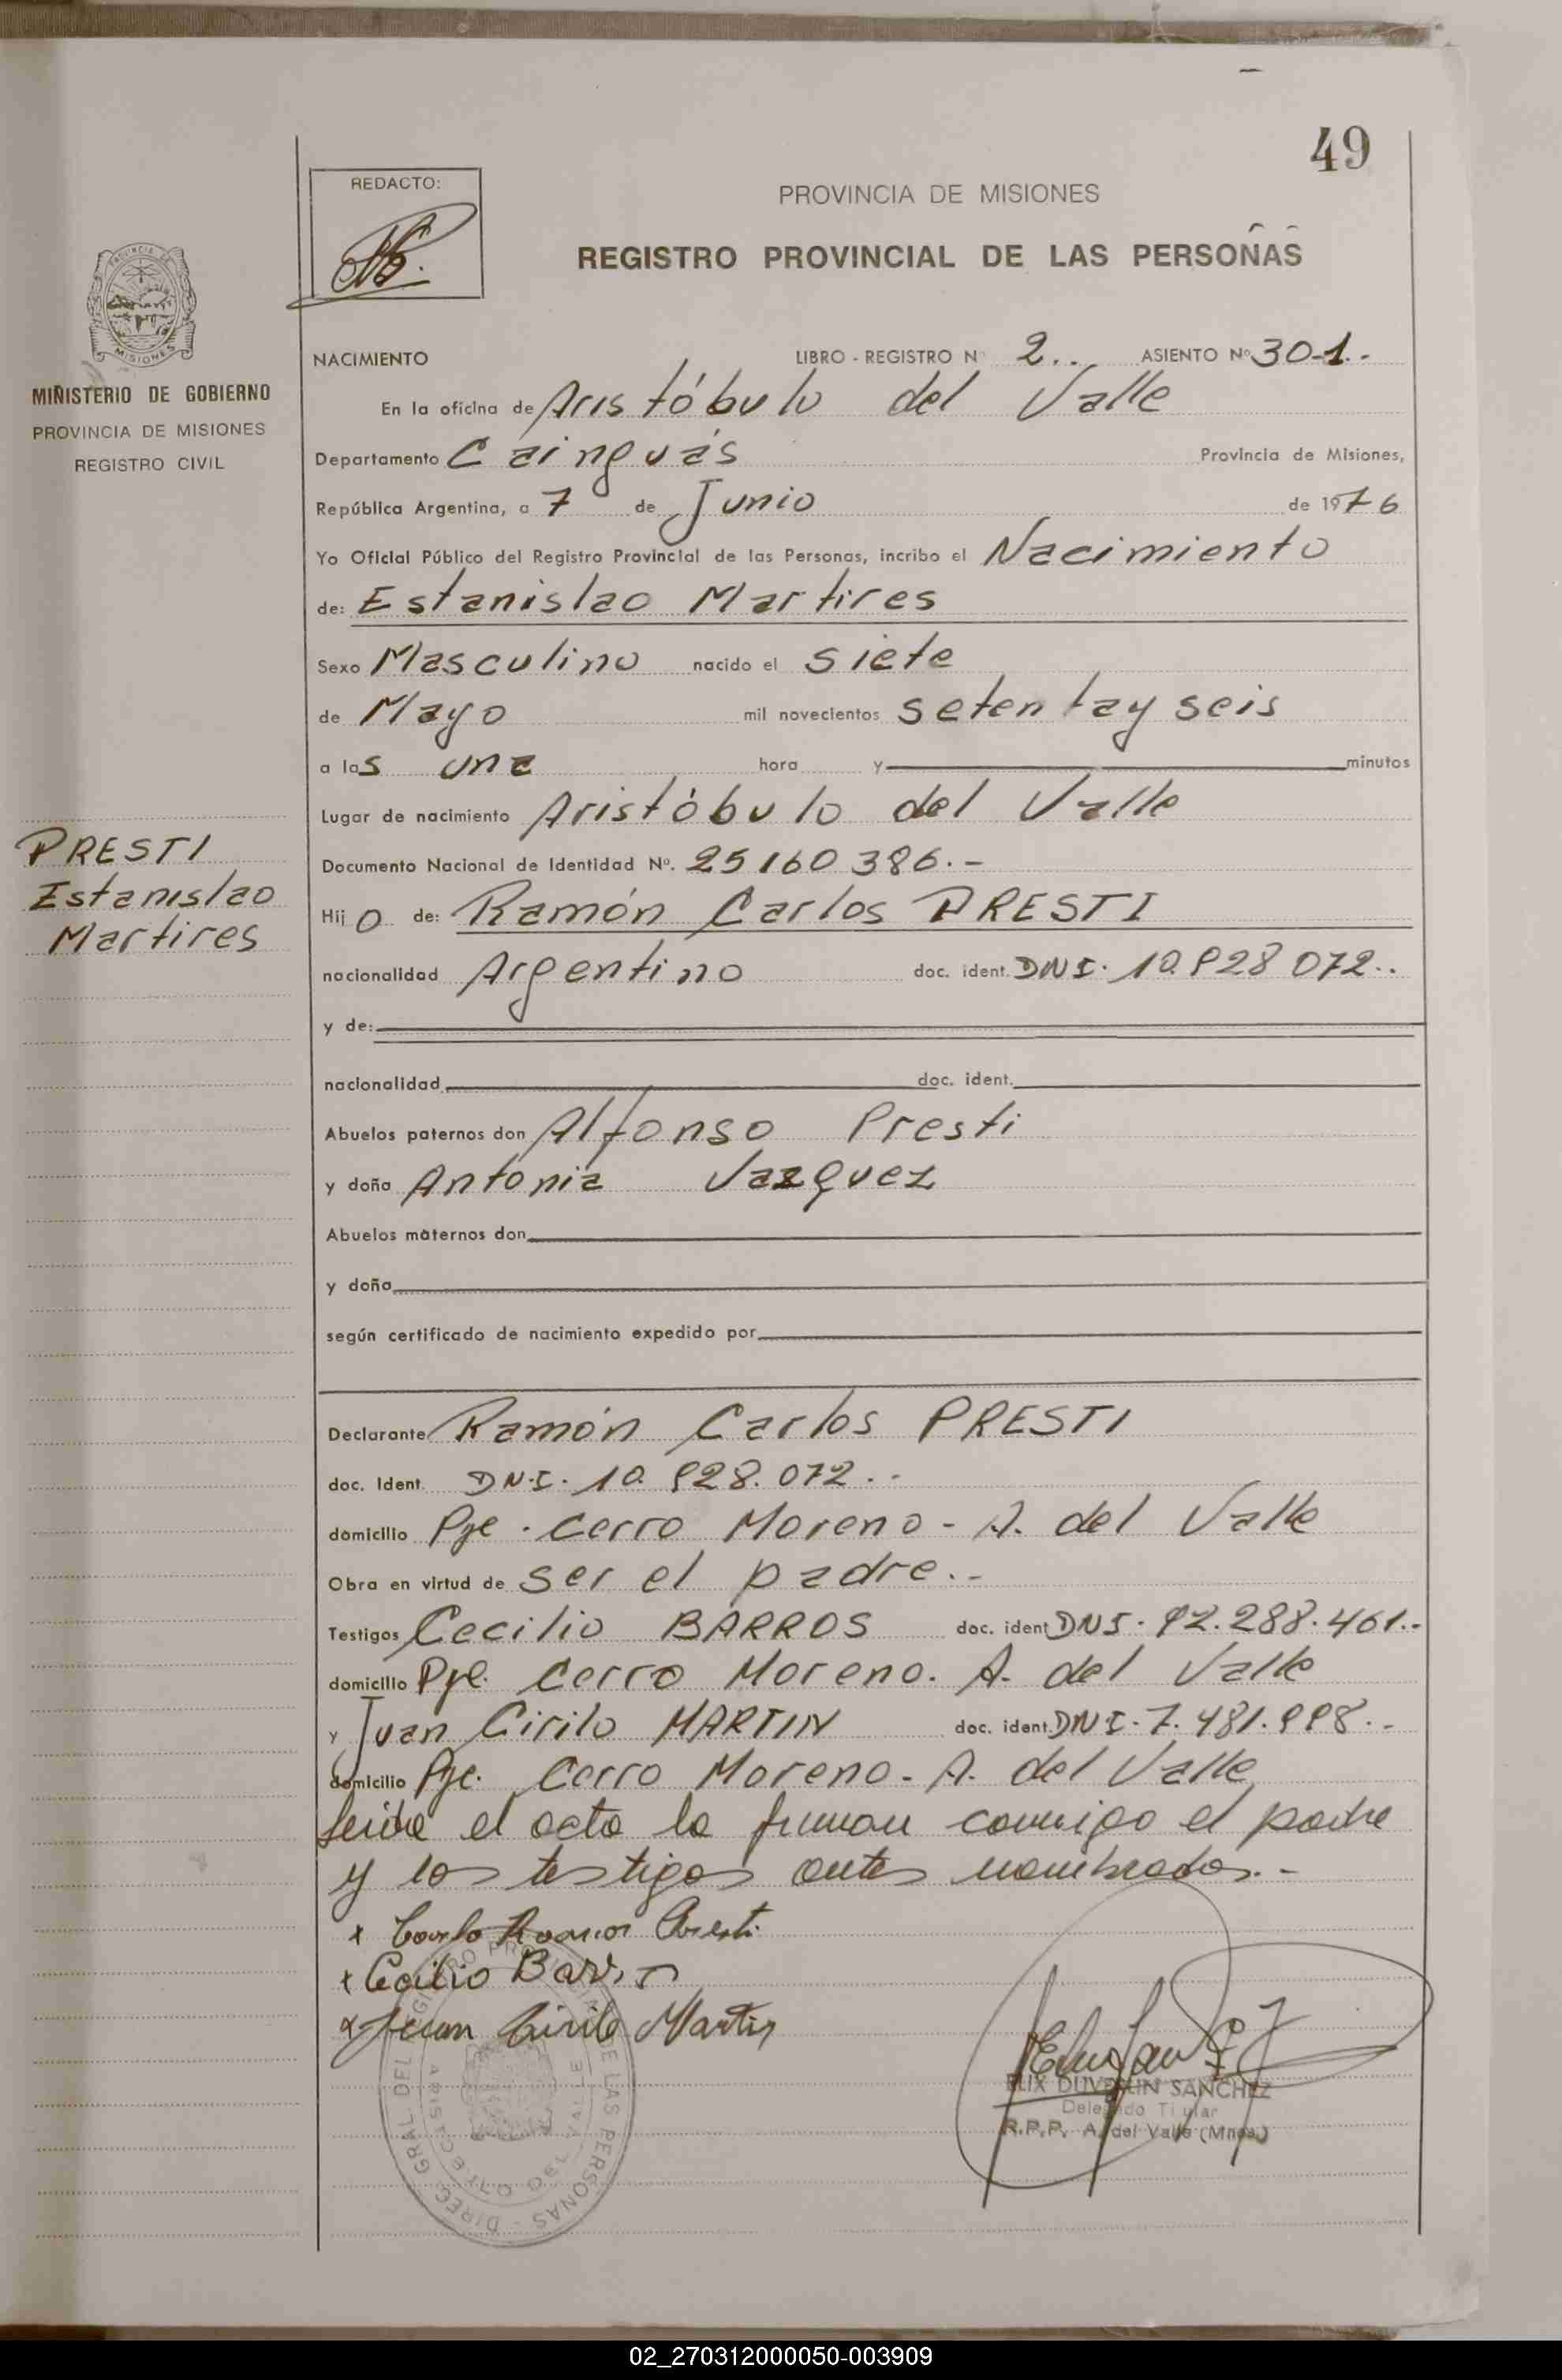 49
REDACTO:
PROVINCIA DE MISIONES
REGISTRO PROVINCIAL DE LAS PERSONAS
MINISTERIO DE GOBIERNO
PROVINCIA DE MISIONES
REGISTRO CIVIL
NACIMIENTO LIBRO - REGISTRO Nº 2.. ASIENTO Nº 301.-
En la oficina de Aristóbulo del Valle
Departamento Cainguás Provincia de Misiones,
República Argentina, a 7 de Junio de 1976
Yo Oficial Público del Registro Provincial de las Personas, incribo el Nacimiento
de: Estanislao Martires
Sexo Masculino nacido el siete
de Mayo mil novecientos setenta y seis
a las una hora y minutos
Lugar de nacimiento Aristóbulo del Valle
PRESTI
Estanislao
Martires
Documento Nacional de Identidad Nº. 25160386.-
Hijo de: Ramón Carlos PRESTI
nacionalidad Argentino doc. ident. DNI. 10.828 072..
y de:
nacionalidad doc. ident.
Abuelos paternos don Alfonso Presti
y doña Antonia Vazquez
Abuelos maternos don
y doña
según certificado de nacimiento expedido por
Declarante Ramón Carlos PRESTI
doc. Ident. DN.I. 10.828.072..-
domicilio Pje. Cerro Moreno - A. del Valle
Obra en virtud de ser el padre.-
Testigos Cecilio BARROS doc. ident DNI. 92.288.461.-
domicilio Pje. Cerro Moreno. A. del Valle
y Juan Cirilo MARTIN doc. ident. DNI. 7.481.998..-
domicilio Pje. Cerro Moreno - A. del Valle
leída el acta la firman conmigo el padre
y los testigos antes nombrados.-
x Carlo Ramon Presti
x Cecilio Barros
x Juan Cirilo Martin
ELIX DUVERLIN SANCHEZ
Delegado Titular
R.P.P. A. del Valle (Mnes.)
02_270312000050-003909